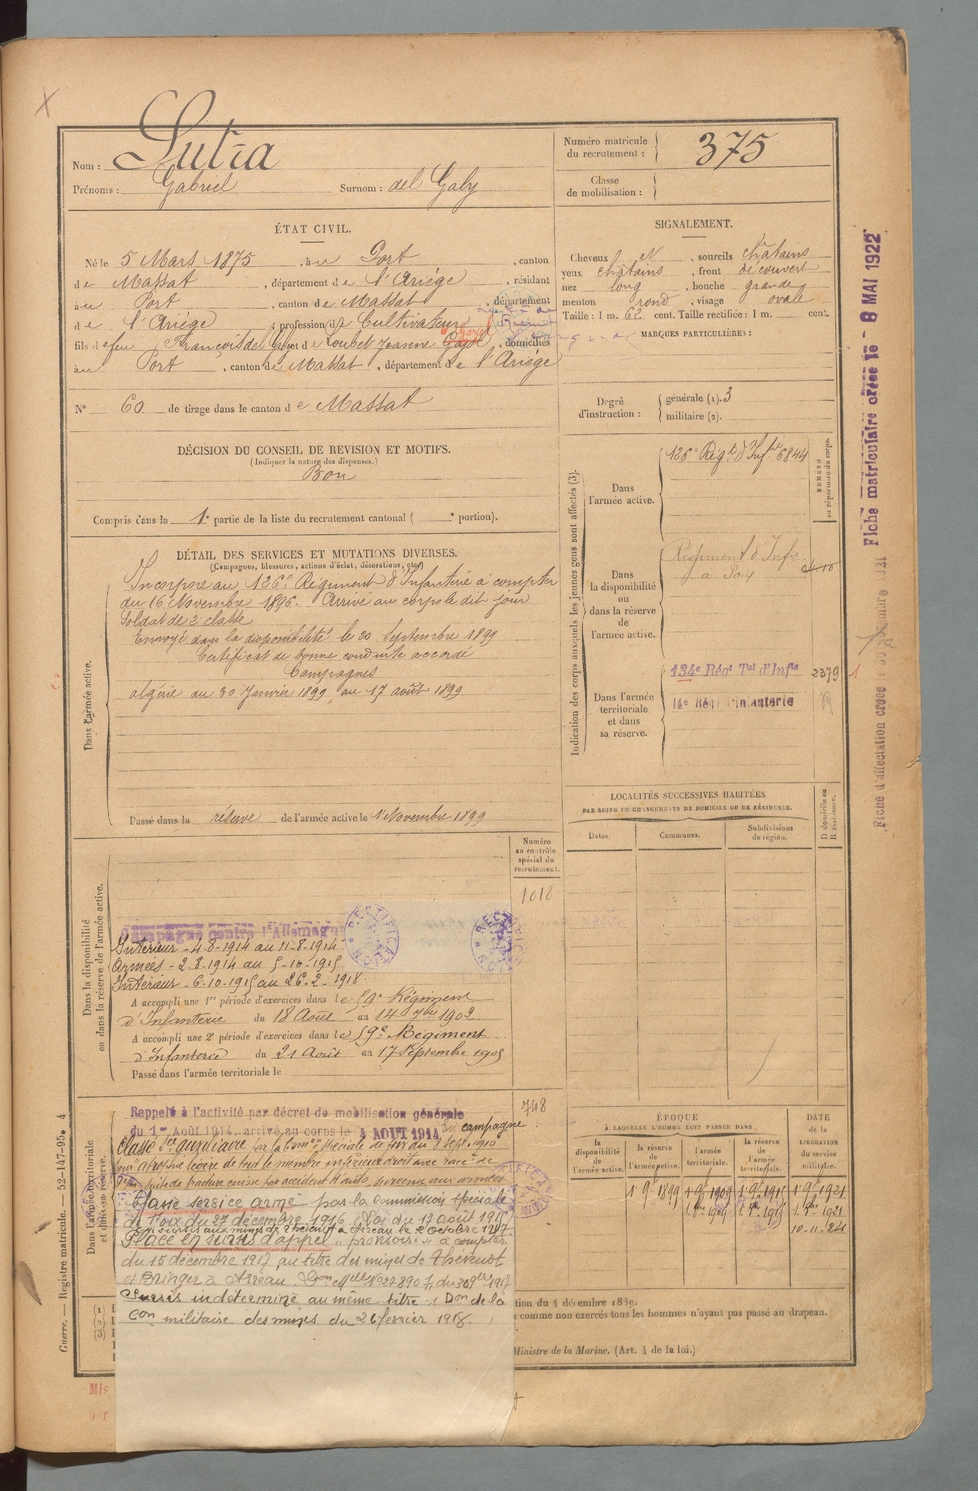 Nom : Sutra
Prénoms : Gabriel Surnom : del Gaby
Numéro matricule du recrutement : 375
Classe de mobilisation :
ÉTAT CIVIL.
Né le 5 Mars 1875, à Port, canton
de Massat, département de l'Ariège, résidant
à Port, canton de Massat, département
de l'Ariège, profession de Cultivateur
fils de feu François del Gaby et de Loubet Jeanne, domiciliés
à Port, canton de Massat, département de l'Ariège
N° 60 de tirage dans le canton de Massat
SIGNALEMENT.
Cheveux et, sourcils châtains
yeux châtains, front découvert
nez long, bouche grande
menton rond, visage ovale
Taille : 1 m. 62 cent. Taille rectifiée : 1 m. cent.
MARQUES PARTICULIÈRES :
Degré d'instruction : générale (1). 3
militaire (2).
DÉCISION DU CONSEIL DE REVISION ET MOTIFS.
(Indiquer la nature des dispenses.)
Bon
Compris dans la 1e partie de la liste du recrutement cantonal ( e portion).
DÉTAIL DES SERVICES ET MUTATIONS DIVERSES.
(Campagnes, blessures, actions d'éclat, décorations, etc.)
Dans l'armée active.
Incorporé au 126e Régiment d'Infanterie à compter
du 16 Novembre 1896. Arrivé au corps le dit jour
Soldat de 2e classe
Envoyé dans la disponibilité le 20 Septembre 1899
Certificat de bonne conduite accordé
Campagnes
algérie du 30 Janvier 1899 au 17 août 1899
Passé dans la réserve de l'armée active le 1 Novembre 1899
Indication des corps auxquels les jeunes gens sont affectés (3).
NUMÉRO au répertoire du corps.
Dans l'armée active. 126e Régt d'Infie 6844
Dans la disponibilité ou dans la réserve de l'armée active. Régiment d'Infie
Dans l'armée territoriale et dans sa réserve. 134e Régt Tal d'Infie 2379
14e Régt Infanterie
LOCALITÉS SUCCESSIVES HABITÉES
PAR SUITE DE CHANGEMENTS DE DOMICILE OU DE RÉSIDENCE.
Dates. Communes. Subdivisions de région. D domicile ou R résidence.
Dans la disponibilité ou dans la réserve de l'armée active.
Numéro au contrôle spécial du recrutement.
1018
Campagne contre l'Allemagne
RECTIFICATION
RECTIFICATION
Intérieur - 4-8-1914 au 11-8-1914
Armées - 2-8-1914 au 5-10-1915
Intérieur - 6-10-1915 au 26-2-1918
A accompli une 1re période d'exercices dans le 59e Régiment
d'Infanterie du 18 Août au 14 7bre 1902
A accompli une 2e période d'exercices dans le 59e Régiment
d'Infanterie du 21 Août au 17 Septembre 1905
Passé dans l'armée territoriale le
Dans l'armée territoriale et dans sa réserve.
748
Rappelé à l'activité par décret de mobilisation générale
du 1er Août 1914, arrivé au corps le 4 AOUT 1914
Classé Sce auxiliaire par la Comon spéciale de
pour atrophie légère de tout le membre inférieur droit avec
suite de fracture cuisse par accident d'auto survenu aux armées
Classé service armé par la commission spéciale
de Foix du 27 décembre 1916, loi du 17 août 1915
Placé en sursis d'appel "provisoire" à compter
du 15 décembre 1917 au titre des mines de
et Bringer à Arreau.
Sursis indéterminé au même titre Don de la
Con militaire des mines du 26 février 1918.
ÉPOQUE
A LAQUELLE L'HOMME DOIT PASSER DANS
la disponibilité de l'armée active. la réserve de l'armée active. l'armée territoriale. la réserve de l'armée territoriale.
DATE de la LIBÉRATION du service militaire.
1 9bre 1899 1 9bre 1909 1 9bre 1915 1 9bre 1921
tion du 4 décembre 1889.
comme non exercés tous les hommes n'ayant pas passé au drapeau.
Ministre de la Marine. (Art. 4 de la loi.)
Guerre. — Registre matricule. — 52-147-95. 4
Fiche matriculaire créée le - 8 MAI 1922